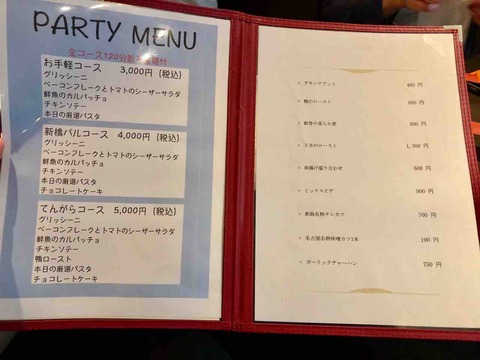 PARTY MENU
全コース120分飲み放題付
お手軽コース 3,000円 (税込)
グリッシーニ
ベーコンフレークとトマトのシーザーサラダ
鮮魚のカルパッチョ
チキンソテー
本日の厳選パスタ
新橋バルコース 4,000円 (税込)
グリッシーニ
ベーコンフレークとトマトのシーザーサラダ
鮮魚のカルパッチョ
チキンソテー
本日の厳選パスタ
チョコレートケーキ
てんがらコース 5,000円 (税込)
グリッシーニ
ベーコンフレークとトマトのシーザーサラダ
鮮魚のカルパッチョ
チキンソテー
鴨ロースト
本日の厳選パスタ
チョコレートケーキ
480 円
鴨のロースト 円
600 円
子羊のロースト 1,300 円
串揚げ盛り合わせ 600 円
ミックスピザ 900 円
新潟名物タレカツ 700 円
名古屋名物味噌カツ1本 190 円
ガーリックチャーハン 750 円